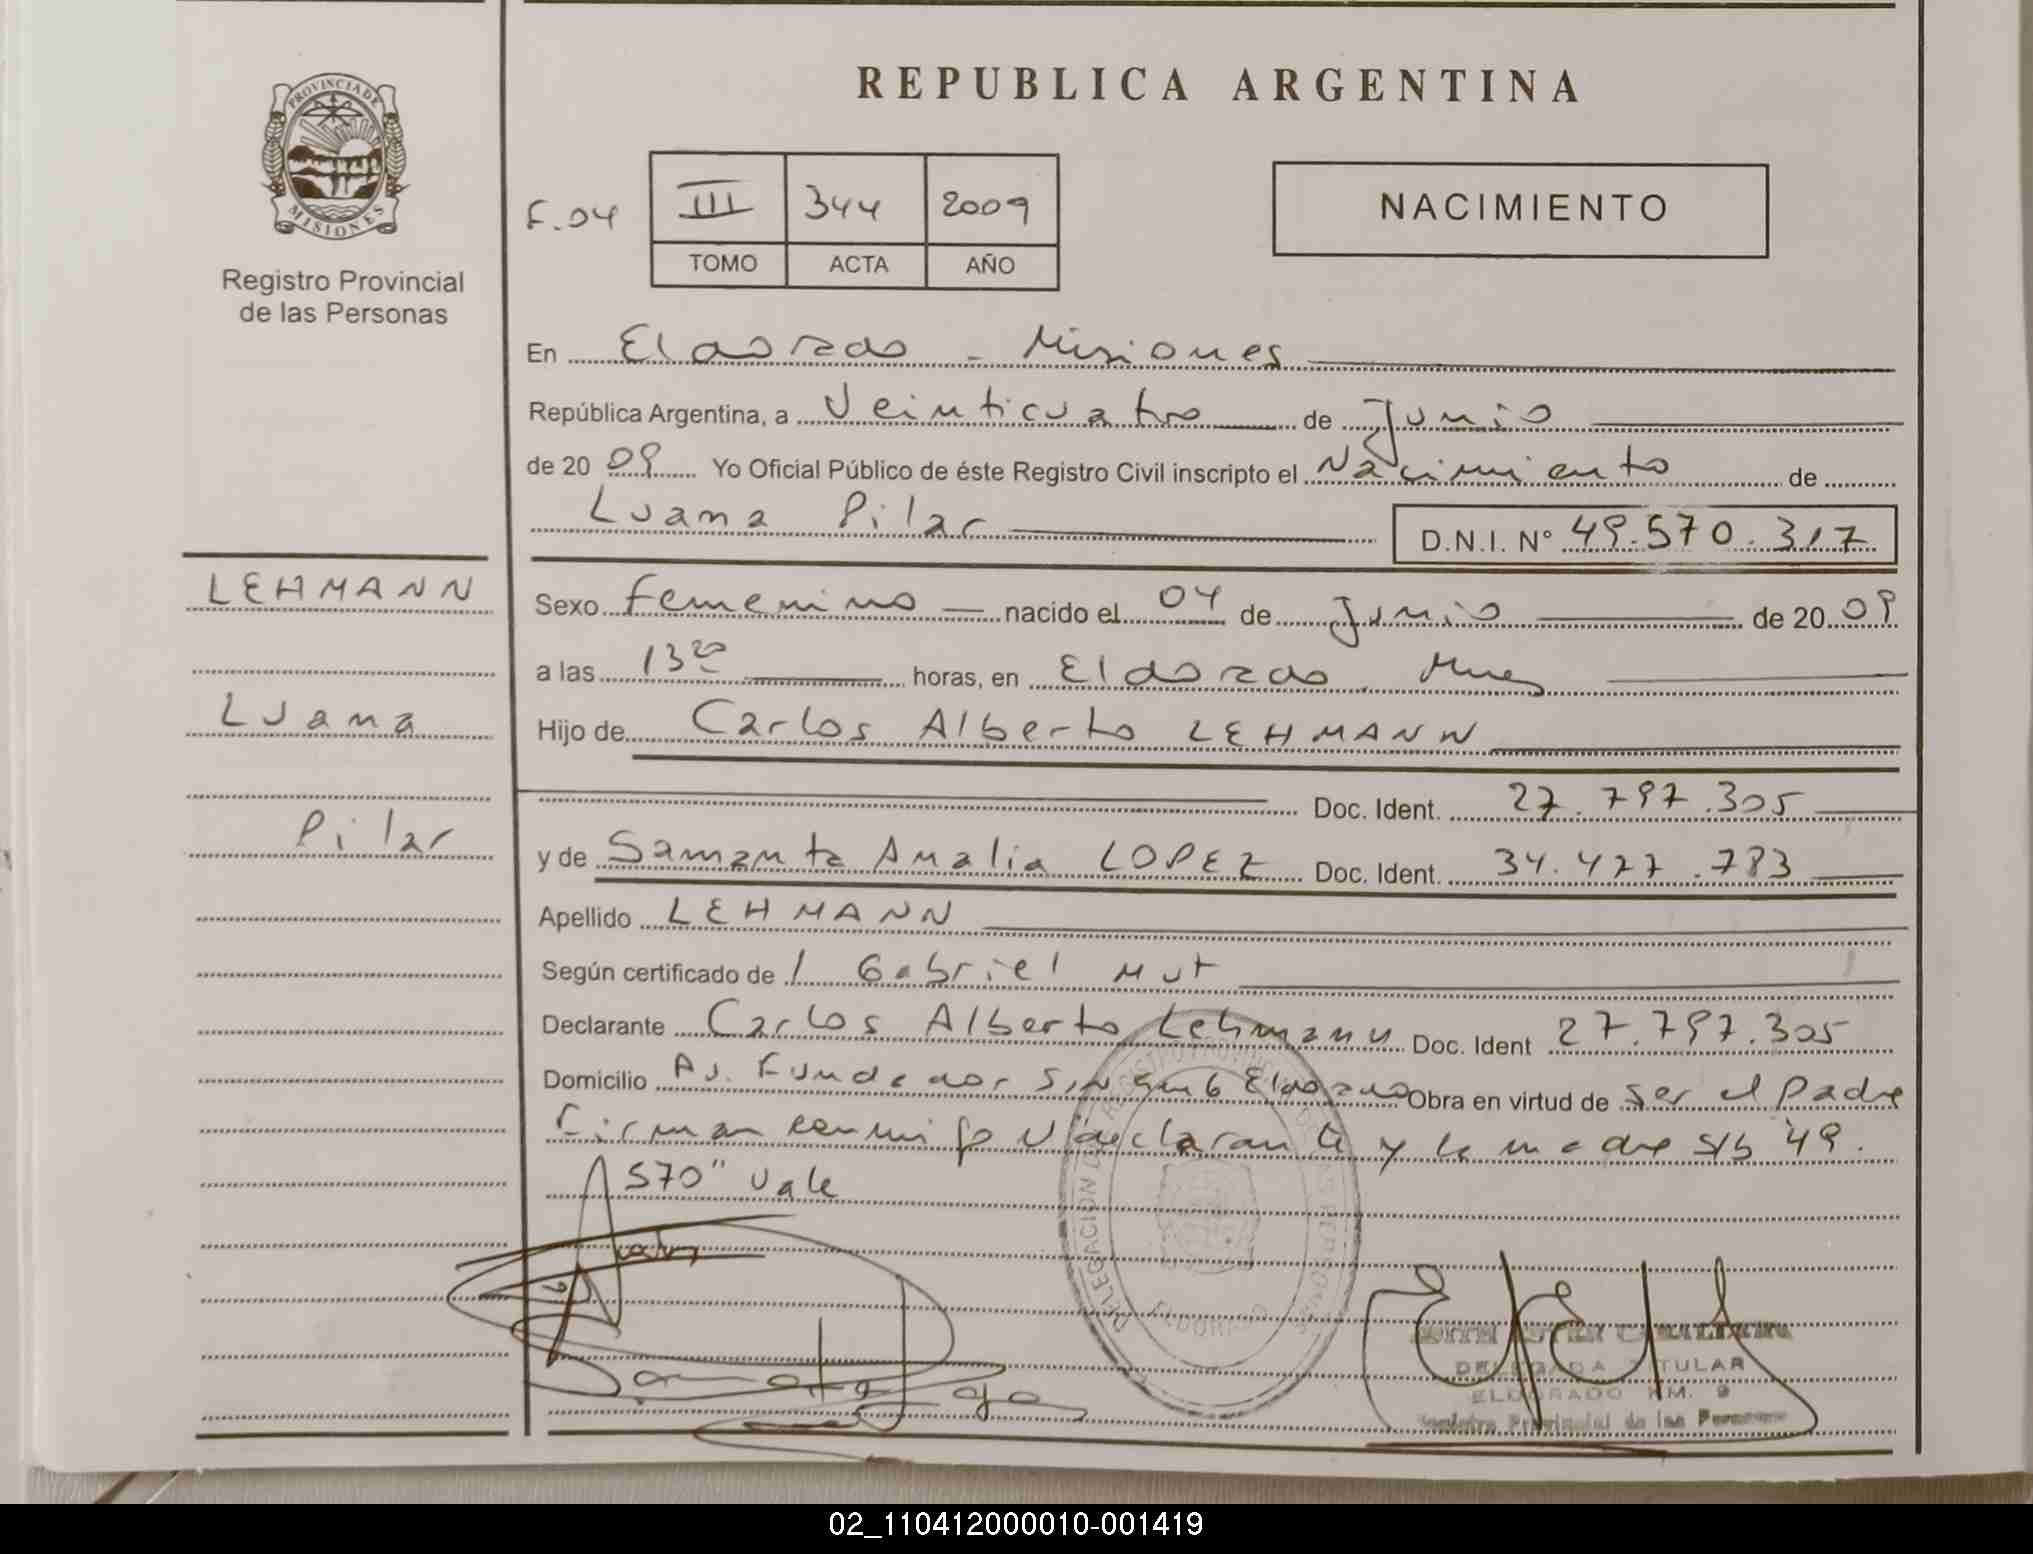 PROVINCIA DE
MISIONES
Registro Provincial
de las Personas
REPUBLICA ARGENTINA
F.04
III 344 2009
TOMO ACTA AÑO
NACIMIENTO
En Eldorado - Misiones
República Argentina, a Veinticuatro de Junio
de 20 09 Yo Oficial Público de éste Registro Civil inscripto el Nacimiento de
Luana Pilar D.N.I. N° 49.570.317
LEHMANN
Luana
Pilar
Sexo Femenino nacido el 04 de Junio de 20 09
a las 13 20 horas, en Eldorado Mnes
Hijo de Carlos Alberto LEHMANN
Doc. Ident. 27.797.305
y de Samanta Amalia LOPEZ Doc. Ident. 34.427.783
Apellido LEHMANN
Según certificado de / Gabriel Mut
Declarante Carlos Alberto Lehmann Doc. Ident 27.797.305
Domicilio Av. Fundador S/N Km 6 Eldorado Obra en virtud de Ser el Padre
Firman conmigo el declarante y la madre S/b "49.
570" Vale
DELEGADA TITULAR
ELDORADO KM. 9
Registro Provincial de las Personas
02_110412000010-001419